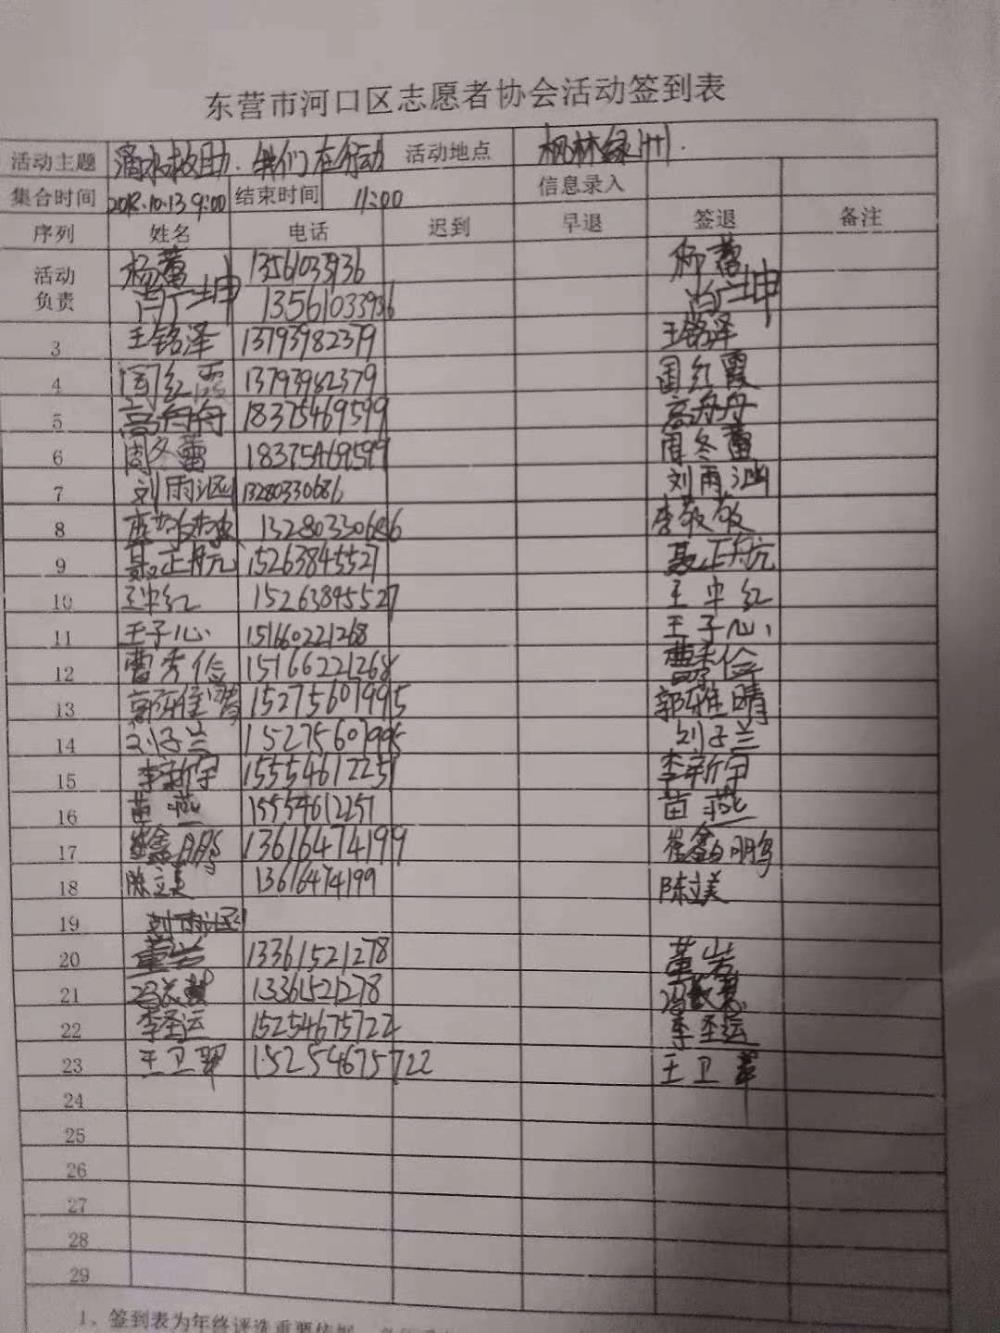 东营市河口区志愿者协会活动签到表
活动主题 滴水救助.我们在行动 活动地点 枫林绿洲.
集合时间 2018.10.13 9:00 结束时间 11:00 信息录入
序列 姓名 电话 迟到 早退 签退 备注
活动负责 杨蕾 13561033936 杨蕾
尚广坤 13561033936 尚广坤
3 王铭泽 13793982379 王铭泽
4 周红霞 13793982379 周红霞
5 高丹丹 18375469599 高丹丹
6 周冬蕾 18375469599 周冬蕾
7 刘雨涵 13280330686 刘雨涵
8 李敬敬 13280330686 李敬敬
9 聂正航 15263845527 聂正航
10 王中红 15263845527 王中红
11 王子心 151660221268 王子心
12 曹秀俭 15166221268 曹秀俭
13 郭雅晴 15275601995 郭雅晴
14 刘子兰 15275601995 刘子兰
15 李新宇 15554612251 李新宇
16 苗燕 15554612251 苗燕
17 崔鑫鹏 13616474199 崔鑫鹏
18 陈立美 13616474199 陈立美
19
20 董岩 13361521278 董岩
21 13361521278
22 李圣运 15254675722 李圣运
23 王卫翠 15254675722 王卫翠
24
25
26
27
28
29
1、签到表为年终评选重要依据